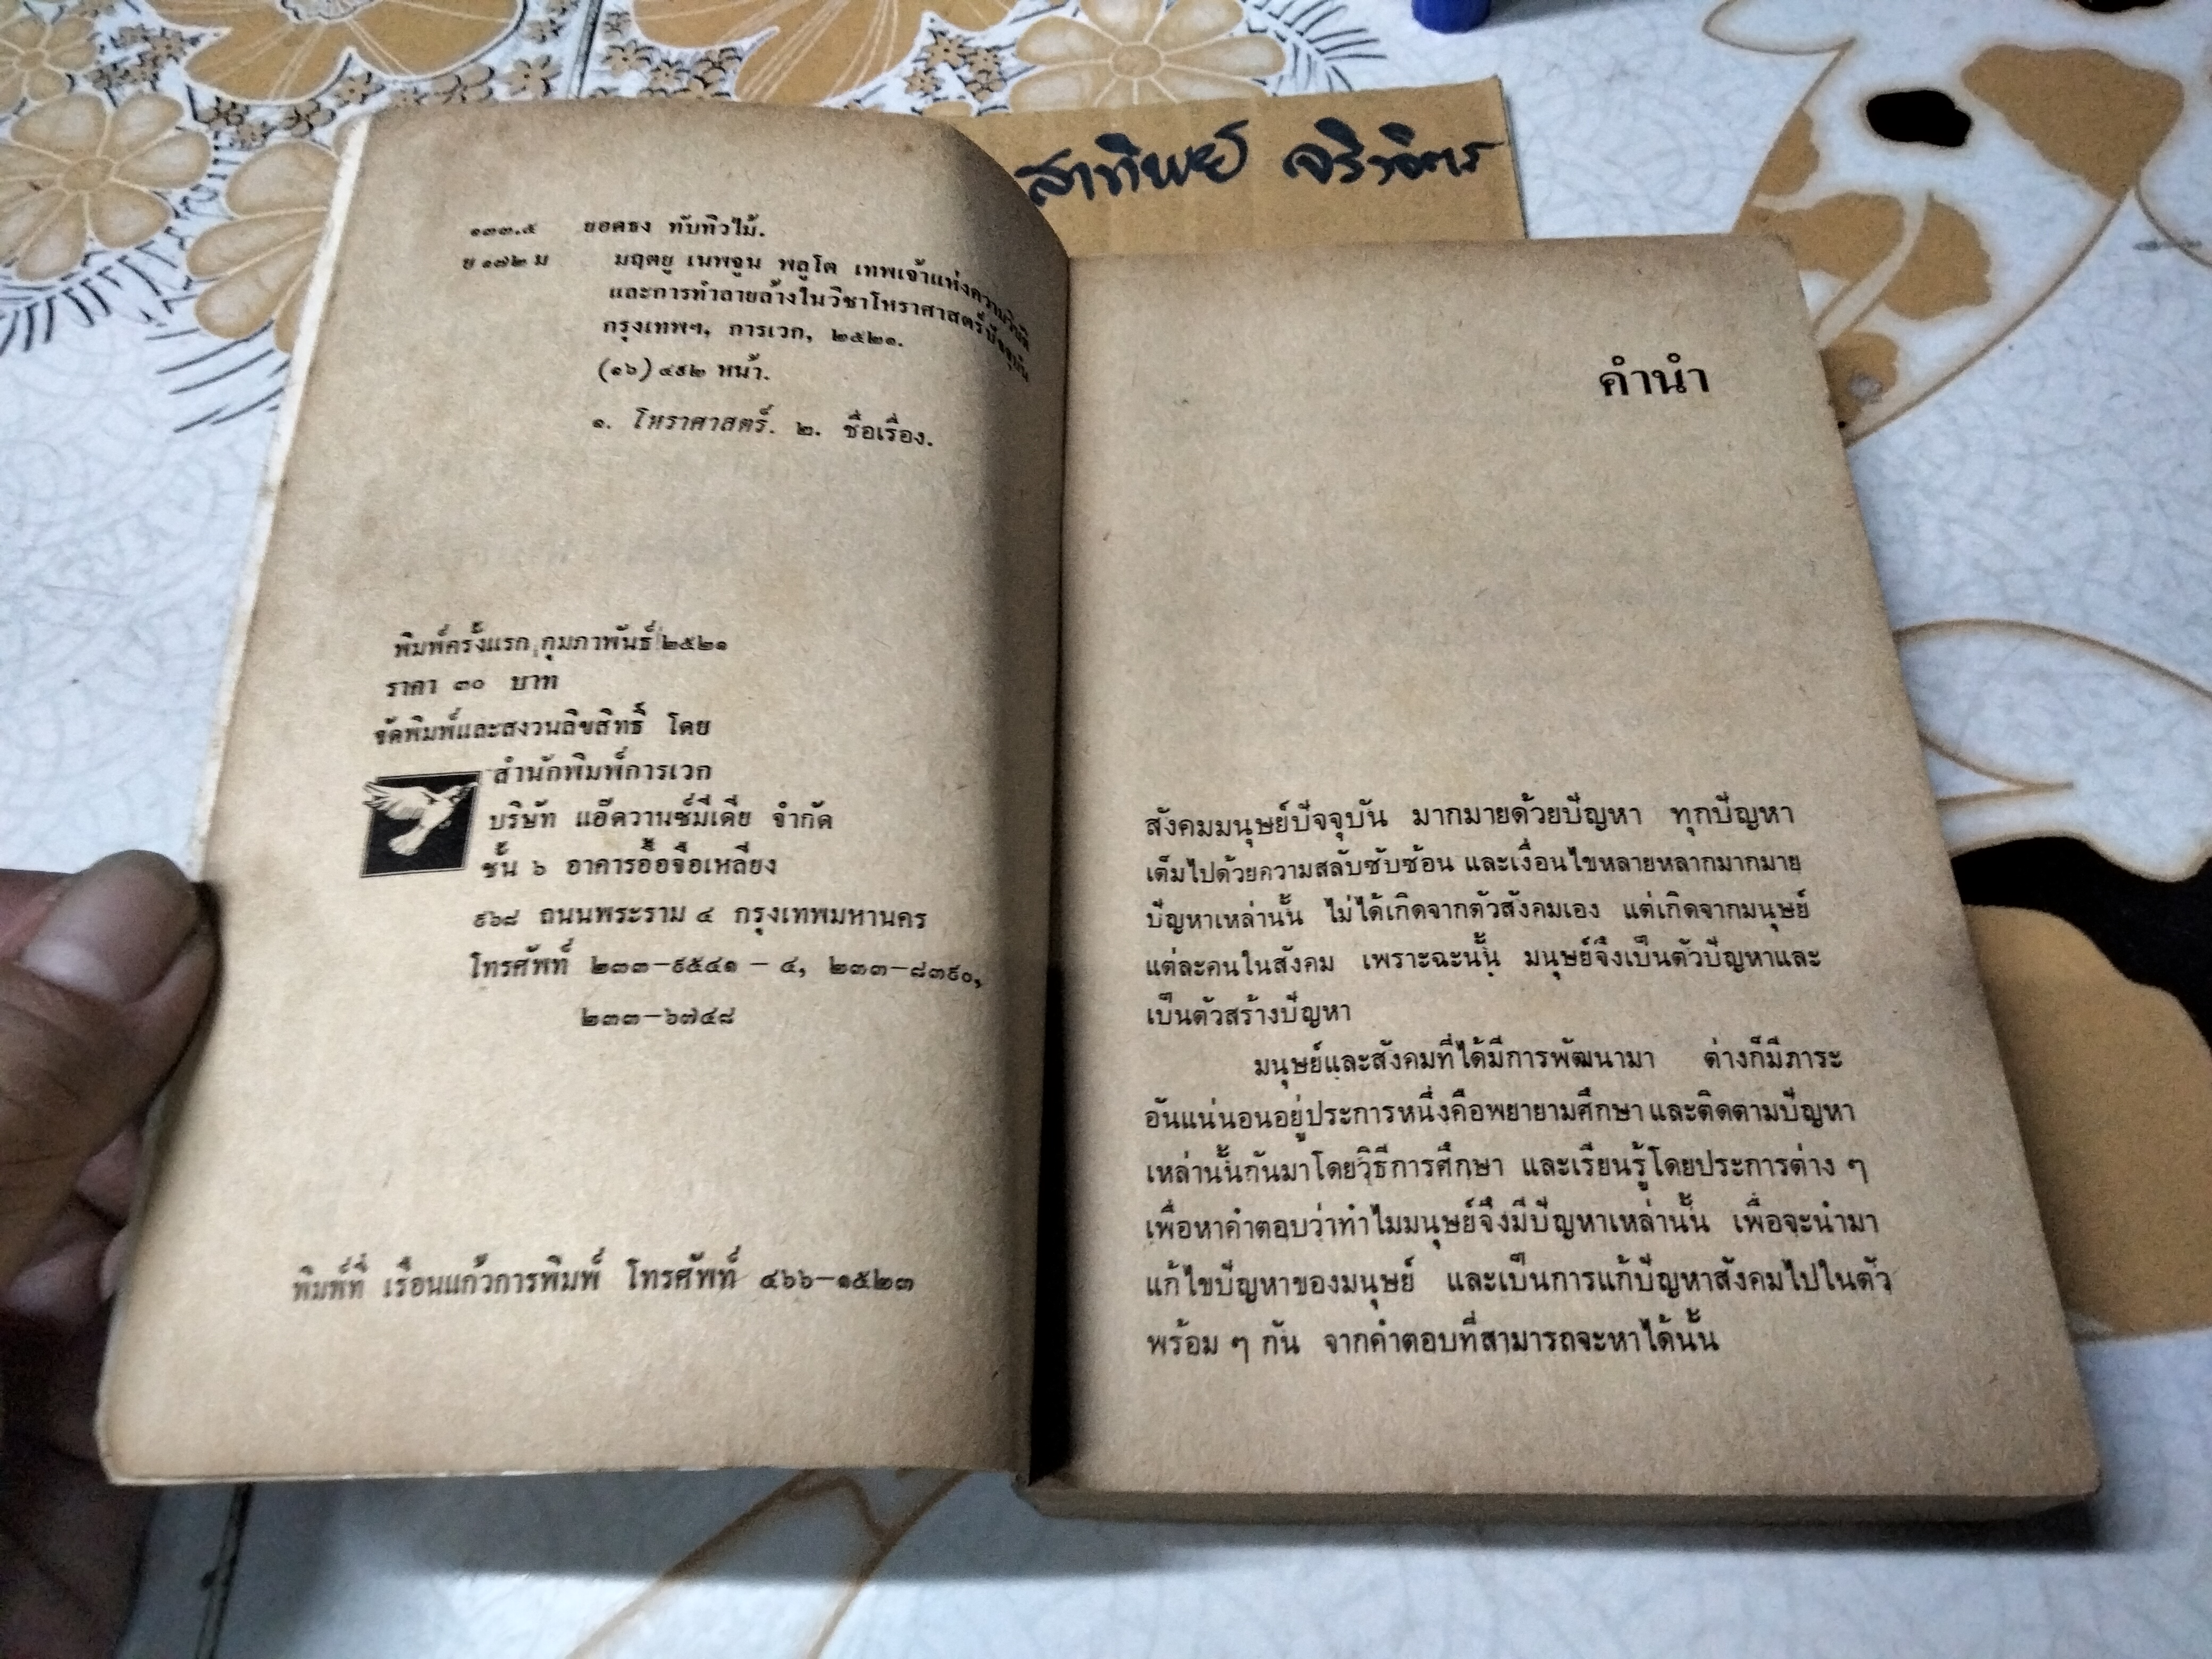 สาทิพย์ จริวจิตร
๑๓๓.๕ ยอดธง ทับทิวไม้.
ย ๑๗๒ ม มฤตยู เนพจูน พลูโต เทพเจ้าแห่งความวิบัติ
และการทำลายล้างในวิชาโหราศาสตร์ปัจจุบัน
กรุงเทพฯ, การเวก, ๒๕๒๑.
(๑๖) ๔๙๒ หน้า.
๑. โหราศาสตร์. ๒. ชื่อเรื่อง.
พิมพ์ครั้งแรก กุมภาพันธ์ ๒๕๒๑
ราคา ๓๐ บาท
จัดพิมพ์และสงวนลิขสิทธิ์ โดย
สำนักพิมพ์การเวก
บริษัท แอ๊ดวานซ์มีเดีย จำกัด
ชั้น ๖ อาคารอื้อจือเหลียง
๙๖๘ ถนนพระราม ๔ กรุงเทพมหานคร
โทรศัพท์ ๒๓๓-๙๕๔๑ - ๔, ๒๓๓-๘๓๙๐,
๒๓๓-๖๗๔๘
พิมพ์ที่ เรือนแก้วการพิมพ์ โทรศัพท์ ๔๖๖-๑๕๒๓
คำนำ
สังคมมนุษย์ปัจจุบัน มากมายด้วยปัญหา ทุกปัญหา
เต็มไปด้วยความสลับซับซ้อน และเงื่อนไขหลายหลากมากมาย
ปัญหาเหล่านั้น ไม่ได้เกิดจากตัวสังคมเอง แต่เกิดจากมนุษย์
แต่ละคนในสังคม เพราะฉะนั้น มนุษย์จึงเป็นตัวปัญหาและ
เป็นตัวสร้างปัญหา
มนุษย์และสังคมที่ได้มีการพัฒนามา ต่างก็มีภาระ
อันแน่นอนอยู่ประการหนึ่งคือพยายามศึกษา และติดตามปัญหา
เหล่านั้นกันมาโดยวิธีการศึกษา และเรียนรู้โดยประการต่าง ๆ
เพื่อหาคำตอบว่าทำไมมนุษย์จึงมีปัญหาเหล่านั้น เพื่อจะนำมา
แก้ไขปัญหาของมนุษย์ และเป็นการแก้ปัญหาสังคมไปในตัว
พร้อม ๆ กัน จากคำตอบที่สามารถจะหาได้นั้น